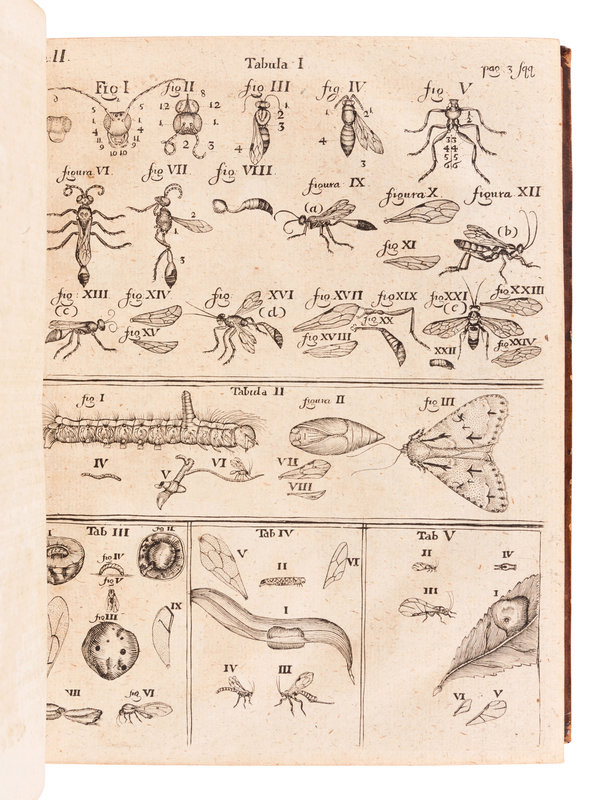 II.
Tabula I
pag 3 sqq
Fig I
fig II
fig III
fig IV
fig V
8
5 5 12 12 1 1 1 2 1
4 4 1 1 2 1 2
11 11 2 3 3 3
9 9 4 4 4
10 10 2 4 3 5 5
6 6
figura VI
fig VII
fig VIII
figura IX
figura X
figura XII
(a)
2
1
(b)
fig XI
3
fig: XIII
fig XIV
fig: XVI
fig XVII
fig XIX
fig XXI
fig XXIII
(c)
(d)
(e)
fig XX
fig XV
fig XVIII
XXII
fig XXIV
Tabula II
fig I
figura II
fig III
IV
VI
VII
V
VIII
Tab III
Tab IV
Tab V
I
fig II
fig IV
V
II
VI
II
IV
fig V
III
I
fig III
IX
I
IV
III
VIII
fig VI
VI
V